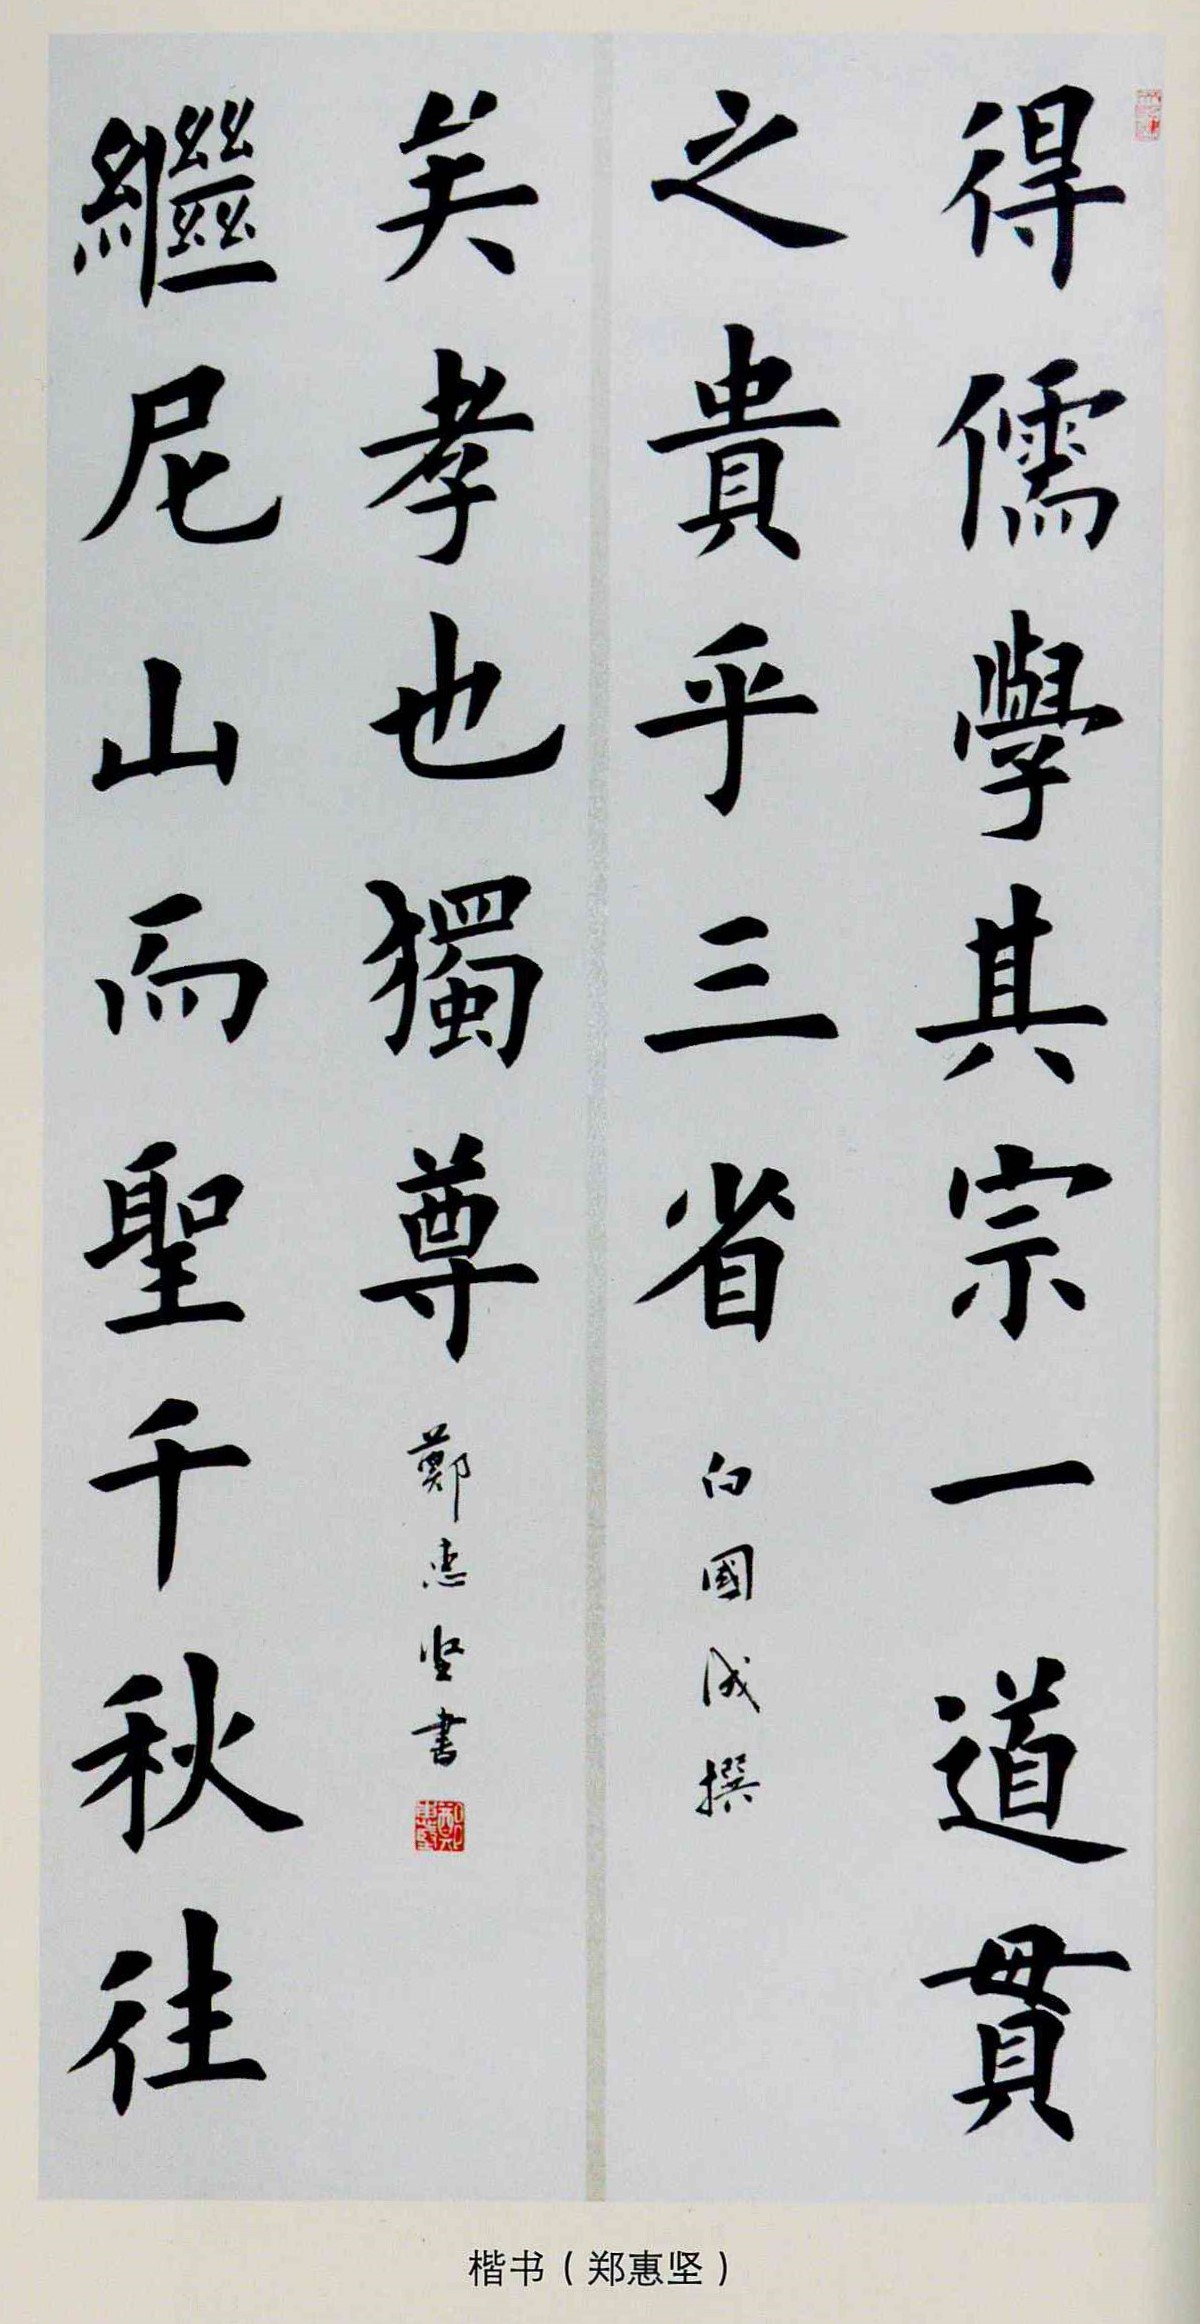 得儒學其宗一道貫
之貴乎三省
白國成撰
繼尼山而聖千秋往
矣孝也獨尊
鄭惠坚書
楷书（郑惠坚）